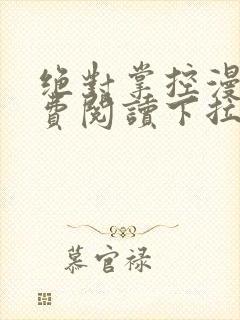 绝對掌控漫
费閱讀下拉
慕官禄